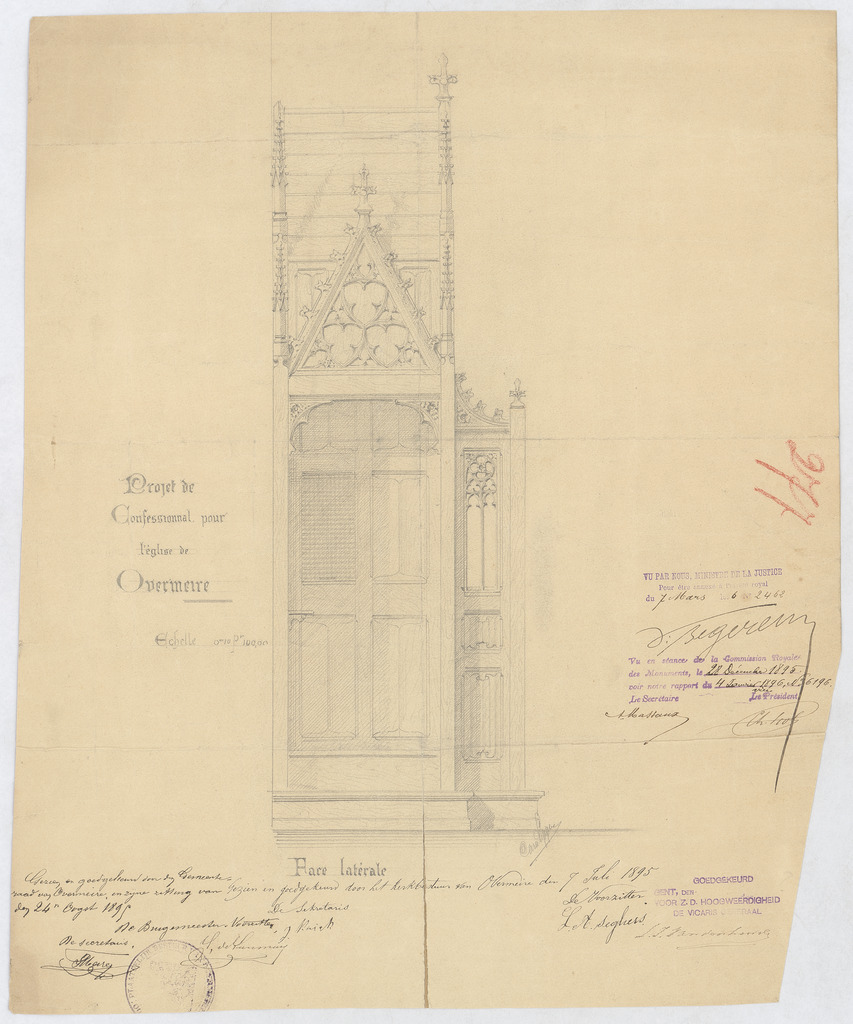 Projet de
Confessionnal pour
l'église de
Overmeire
Echelle
116
VU PAR NOUS, MINISTRE DE LA JUSTICE
Pour être annexé à l'arrêté royal
du 7 Mars 1896 2462
Vu en séance de la Commission Royale
des Monuments, le 28 Décembre 1895
voir notre rapport du 4 Janvier 1896, N° 6196.
Le Secrétaire Le Président
A Massaux
Face latérale
Gezien en goedgekeurd door den Gemeente-
raad van Overmeire, in zijne zitting van
den 24n Oogst 1895
De Burgemeester Voorzitter,
De secretaris,
Gezien en goedgekeurd door het kerkbestuur van Overmeire den 7 Juli 1895
De Sekretaris
De Voorzitter
Seghers
GOEDGEKEURD
GENT, DEN
VOOR Z. D. HOOGWEERDIGHEID
DE VICARIS GENERAAL